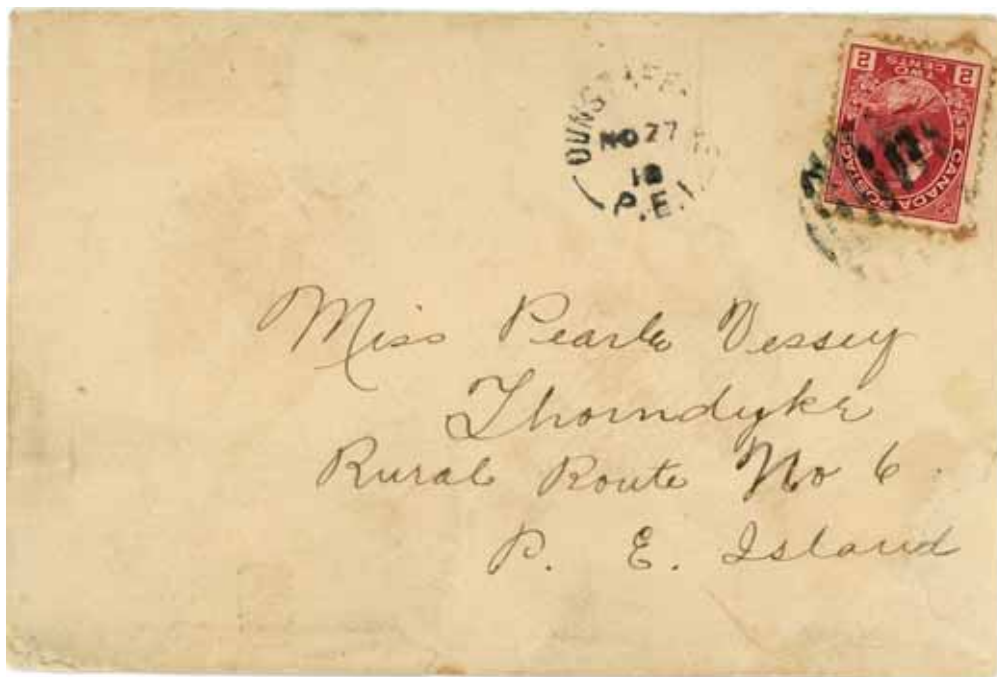 NO 27
18
P.E.I
2 CENTS 2
TWO
CANADA POSTAGE
Miss Pearle Vessey
Thorndyke
Rural Route No 6.
P. E. Island